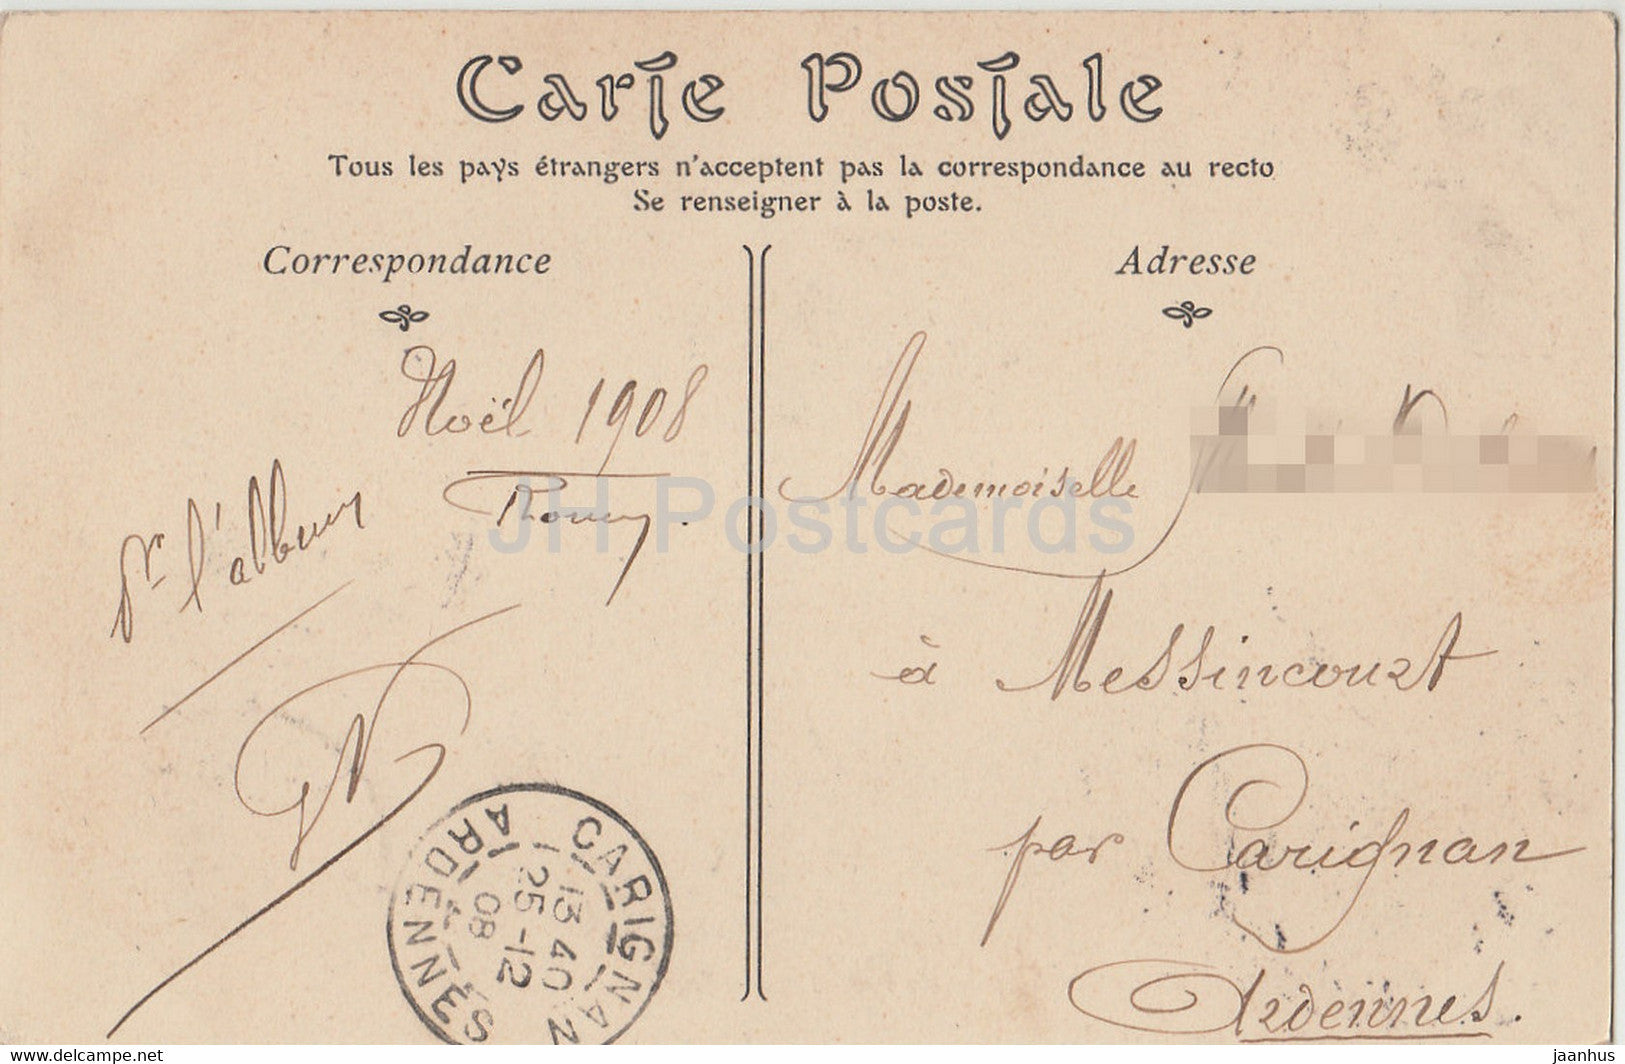 Carte Postale
Tous les pays étrangers n'acceptent pas la correspondance au recto
Se renseigner à la poste.
Correspondance
Adresse
Noël 1908
Pr l'album
Mademoiselle
à Messincourt
par Carignan
Ardennes.
CARIGNAN
ARDENNES
13 40
25 -12
08
JH Postcards
www.delcampe.net
jaanhus